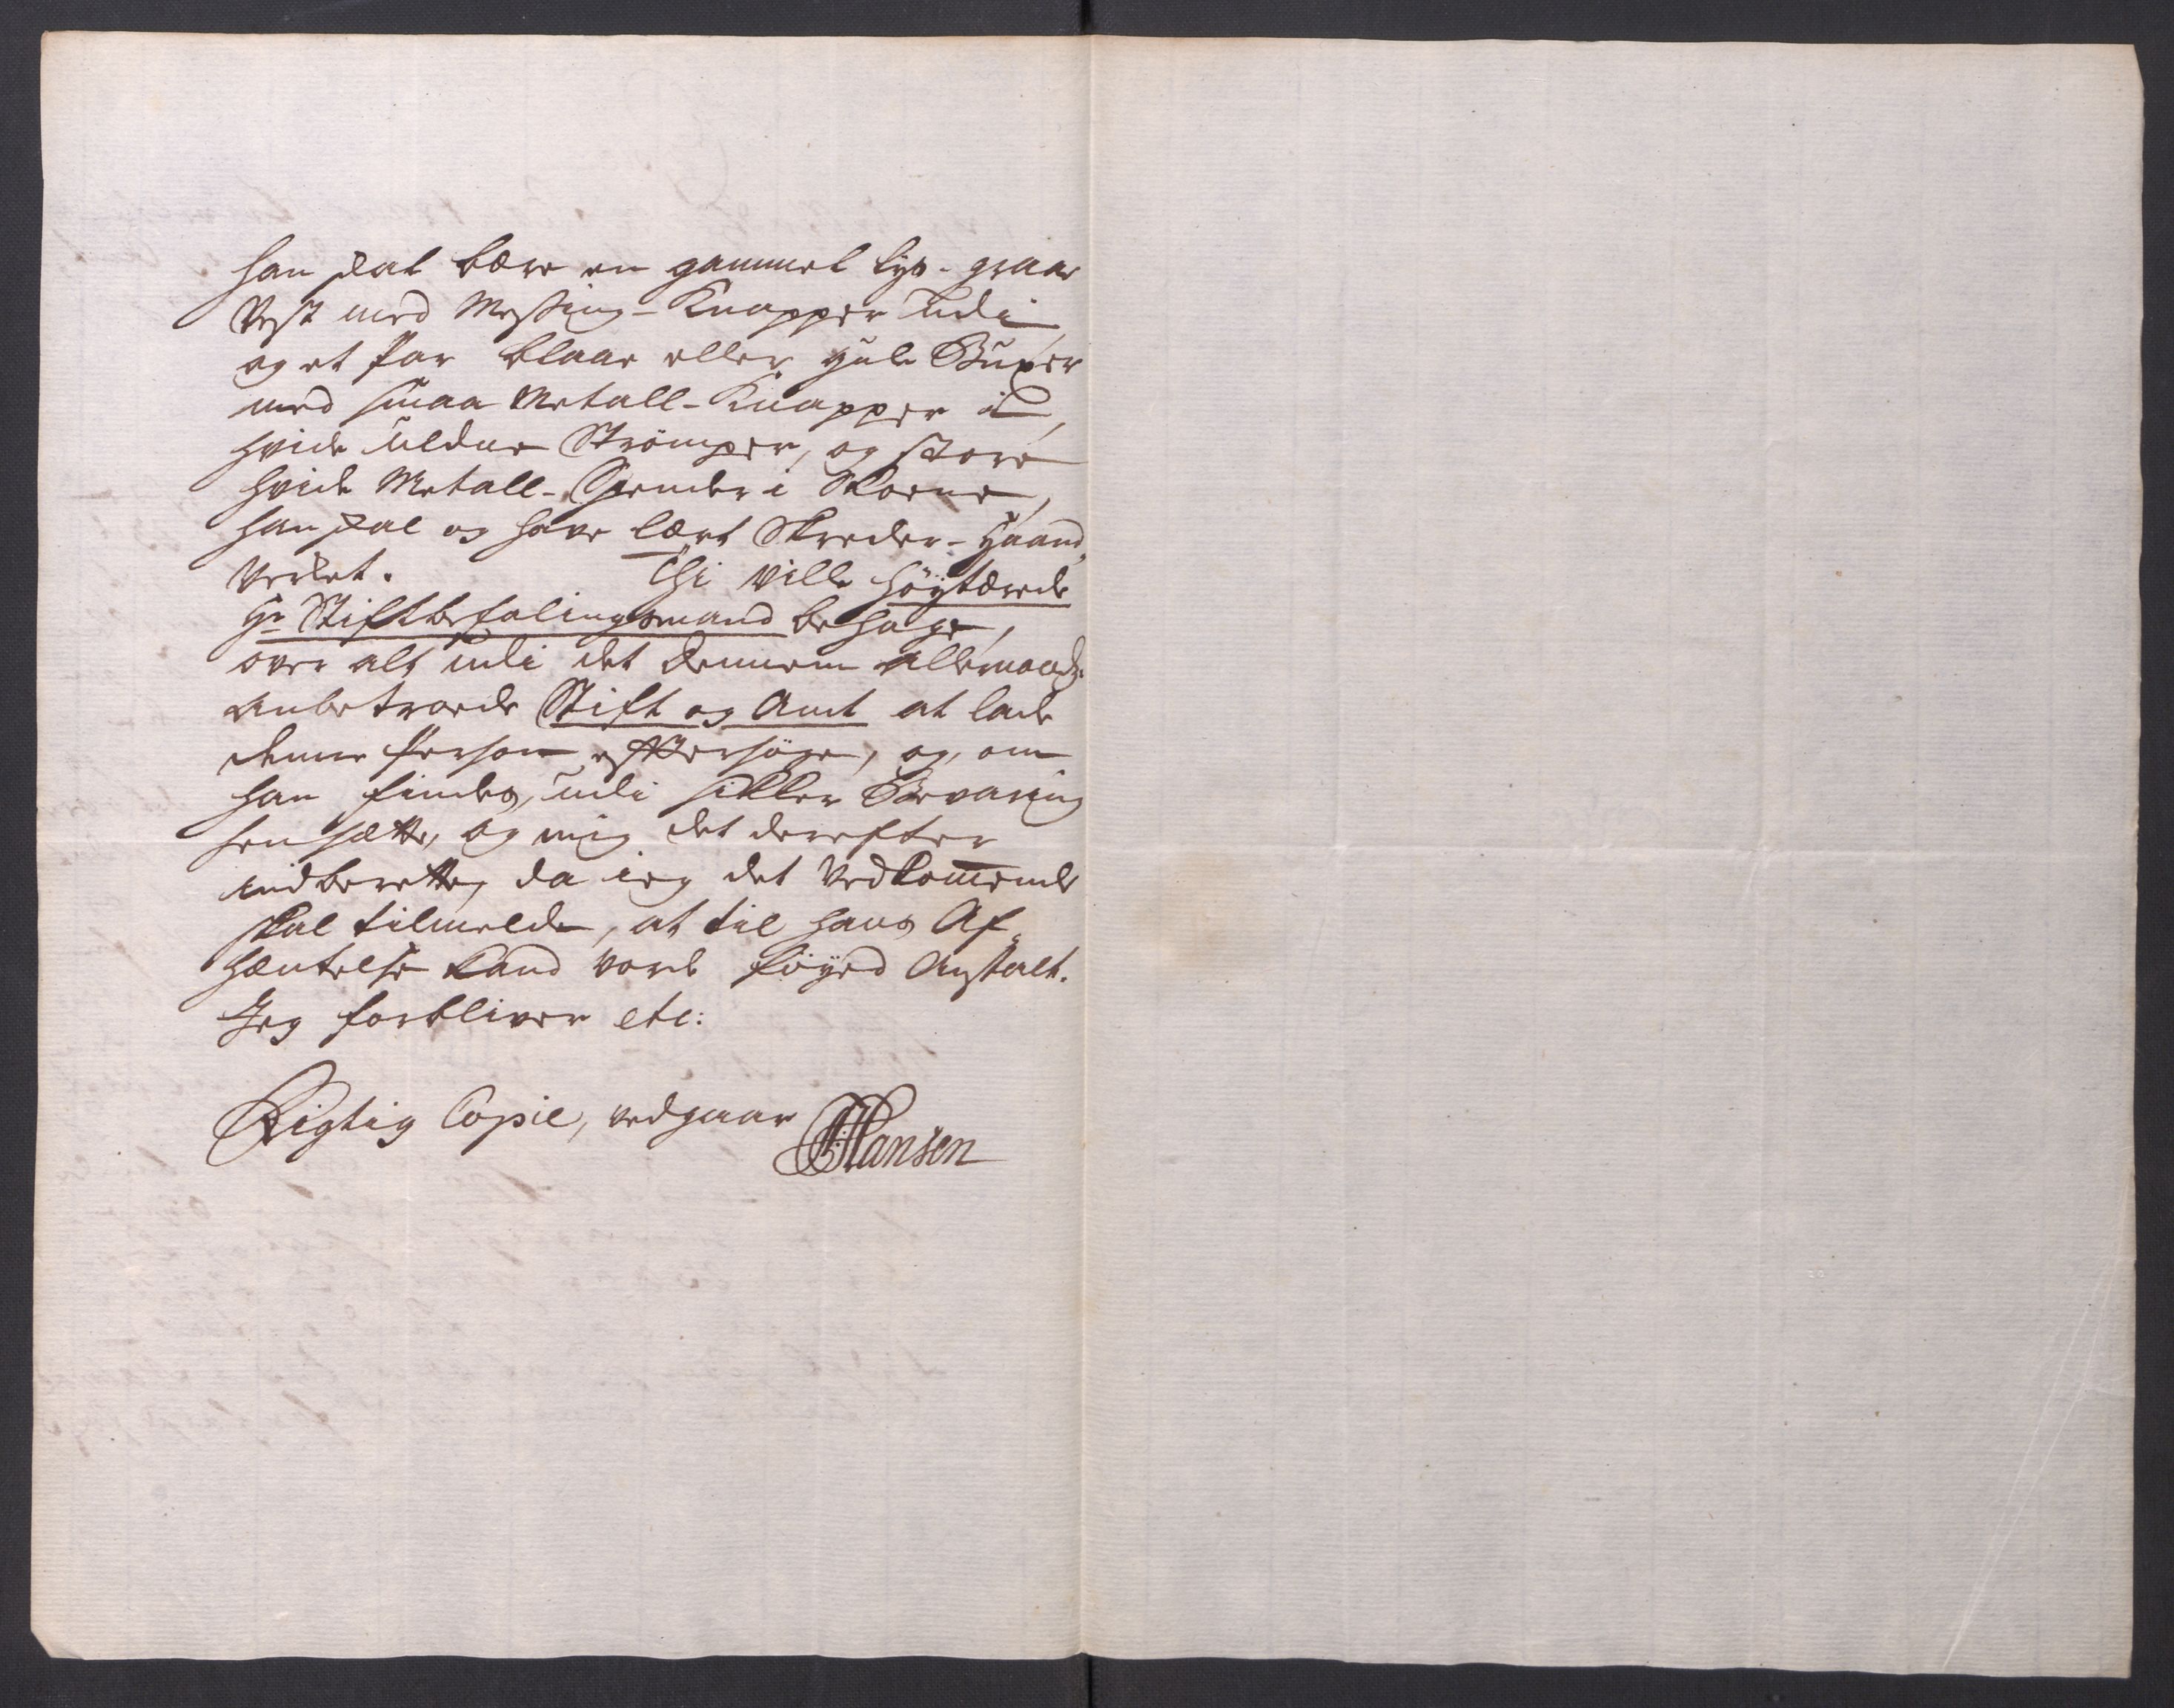 han skal bære en gammel lys-graae
Vest med Messing-Knapper udi,
og et Par blaae eller gule Buxer
med smaa Metall-Knapper i,
hvide uldne Strömper, og store
hvide Metall-Spender i Skoene,
han skal og have lært Skreder-Haand„
verket. Thi ville Höytærede
Hr Stiftbefalingsmand behage,
over alt udi det Dennem allernaadst
anbetroede Stift og Amt at lade
denne Person eftersöge, og, om
han findes, udi sikker Bevaring
hensætte, og mig det derefter
indberette, da ieg det Vedkom̄ende
skal tilmelde, at til hans Af„
hæntelse kand vorde föyed Anstalt.
Jeg forbliver etc:
Rigtig Copie, vedgaaer
Hansen